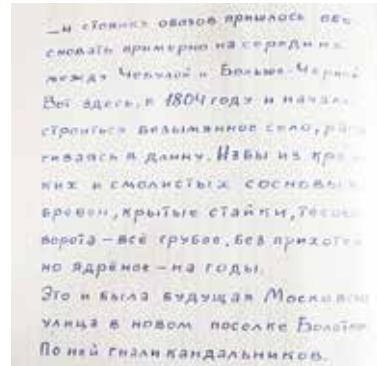 и стоянку обозов пришлось обо
сновать примерно на середине
между Чебулой и Большо-Черной
Вот здесь, в 1804 году и начало
строиться безымянное село, рас
гиваясь в длину. Избы из креп
ких и смолистых сосновых
бревен, крытые стайки, тесовы
ворота – всё грубое, без прихоте
но ядрёное – на годы.
Это и была будущая Московская
улица в новом поселке Болотно
По ней гнали кандальников.